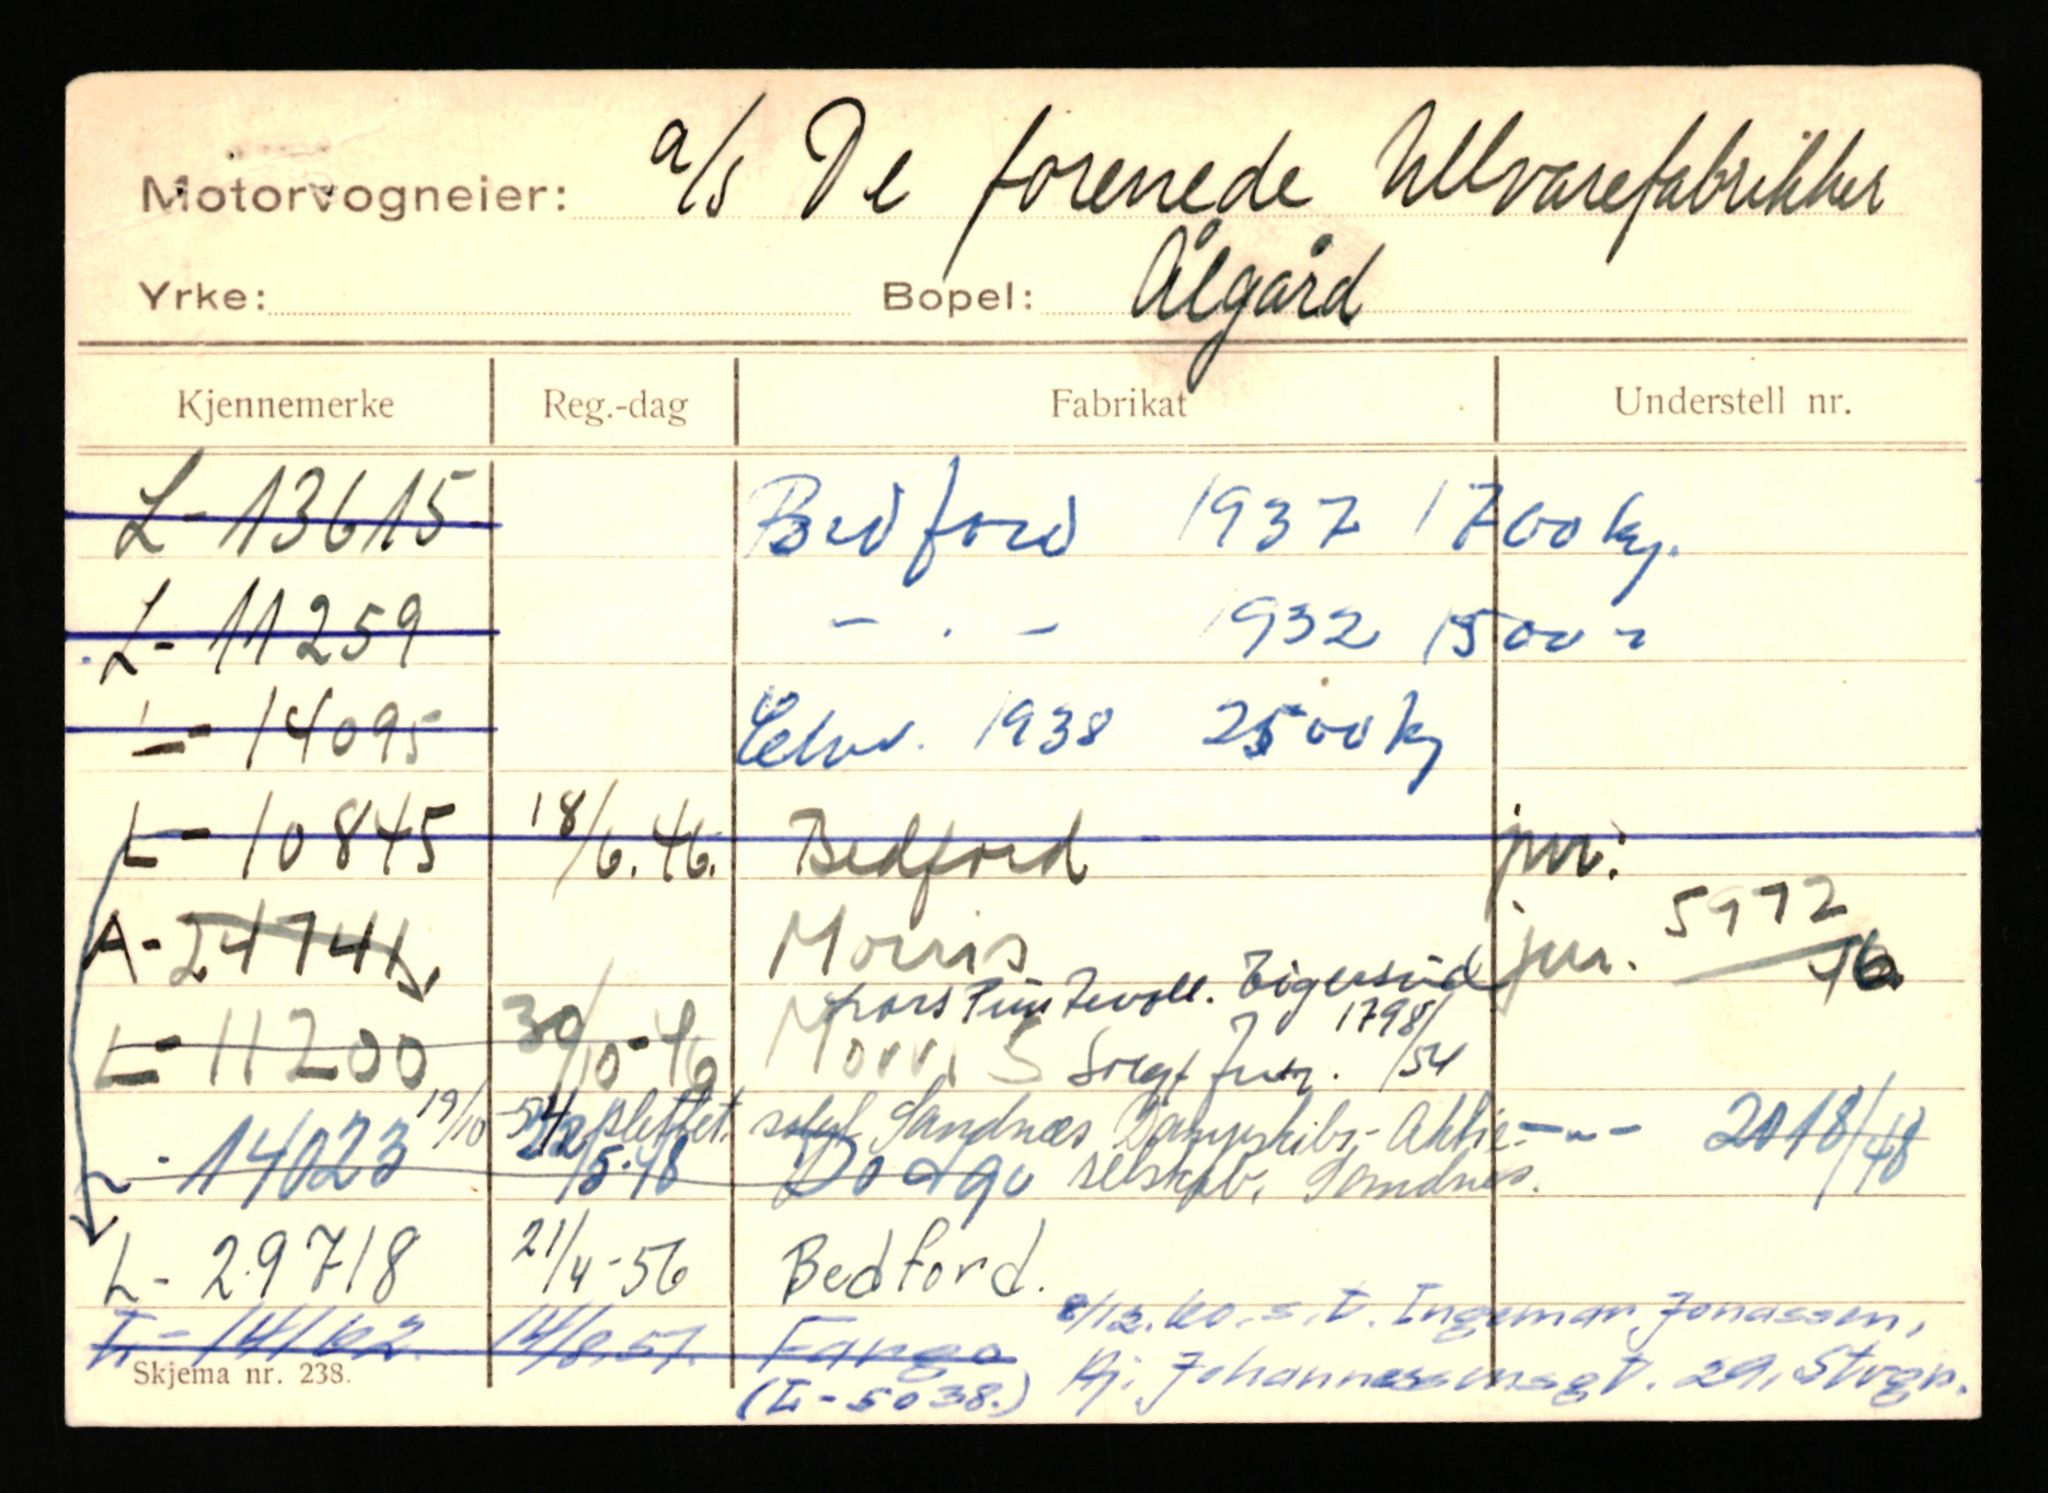 Motorvogneier: a/s De forenede Ullvarefabrikker
Yrke: Bopel: Ålgård
Kjennemerke Reg.-dag Fabrikat Understell nr.
L-13615 Bedford 1937 1700 kg.
L-11259 - . - 1932 1500 "
L-14095 Chev. 1938 2500 kg
L-10845 18/6.46. Bedford jnr.
A-24741 Morris jnr. 5972/46
Lars Eigersund
L-11200 30/10-46 Morris Solgt Jnr. 1798/54
19/10-54 slettet. solgt Sandnæs Dampskibs-Aktie- -"- 2018/48
L-14023 22/5.48 Dodge selskab, Sandnes.
L-29718 21/4-56 Bedford.
8/12.60.s.t. Ingemar Jonassen,
L-14162 14/8.57. Fargo
Skjema nr. 238.
(L-5038.) Hj. Johannessensgt. 29, Stvgr.